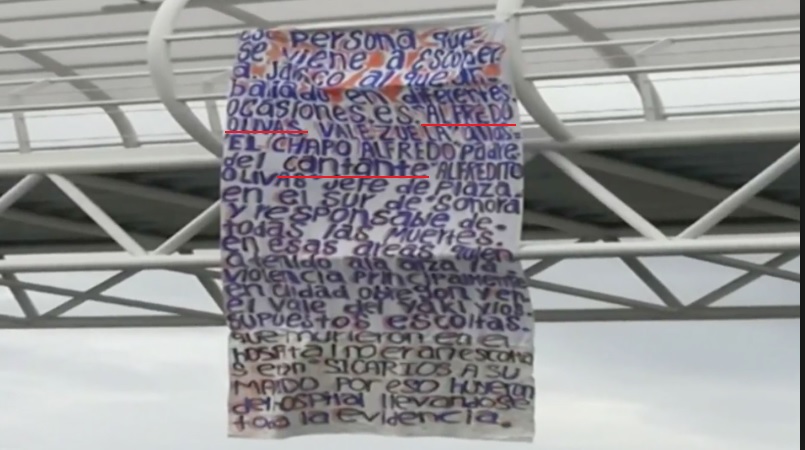 esa persona que
se viene a esconder
a Jalisco al que le
bailado en diferentes
ocasiones.es.ALFREDO
OLIVAS VALENZUELA alias.
"EL CHAPO ALFREDO Padre
del cantante ALFREDITO
OLIVAS Jefe de Plaza
en el sur de sonora
y responsable de-
todas las muertes.
en esas areas quien
a venido a la
violencia principalmente
en ciudad obregon y en
el valle del yaqui y los
supuestos escoltas.
que murieron en el
hospital no eran escolta
s eran "SICARIOS A SU
MANDO POR eso huyeron
del hospital llevandose
toda la evidencia.